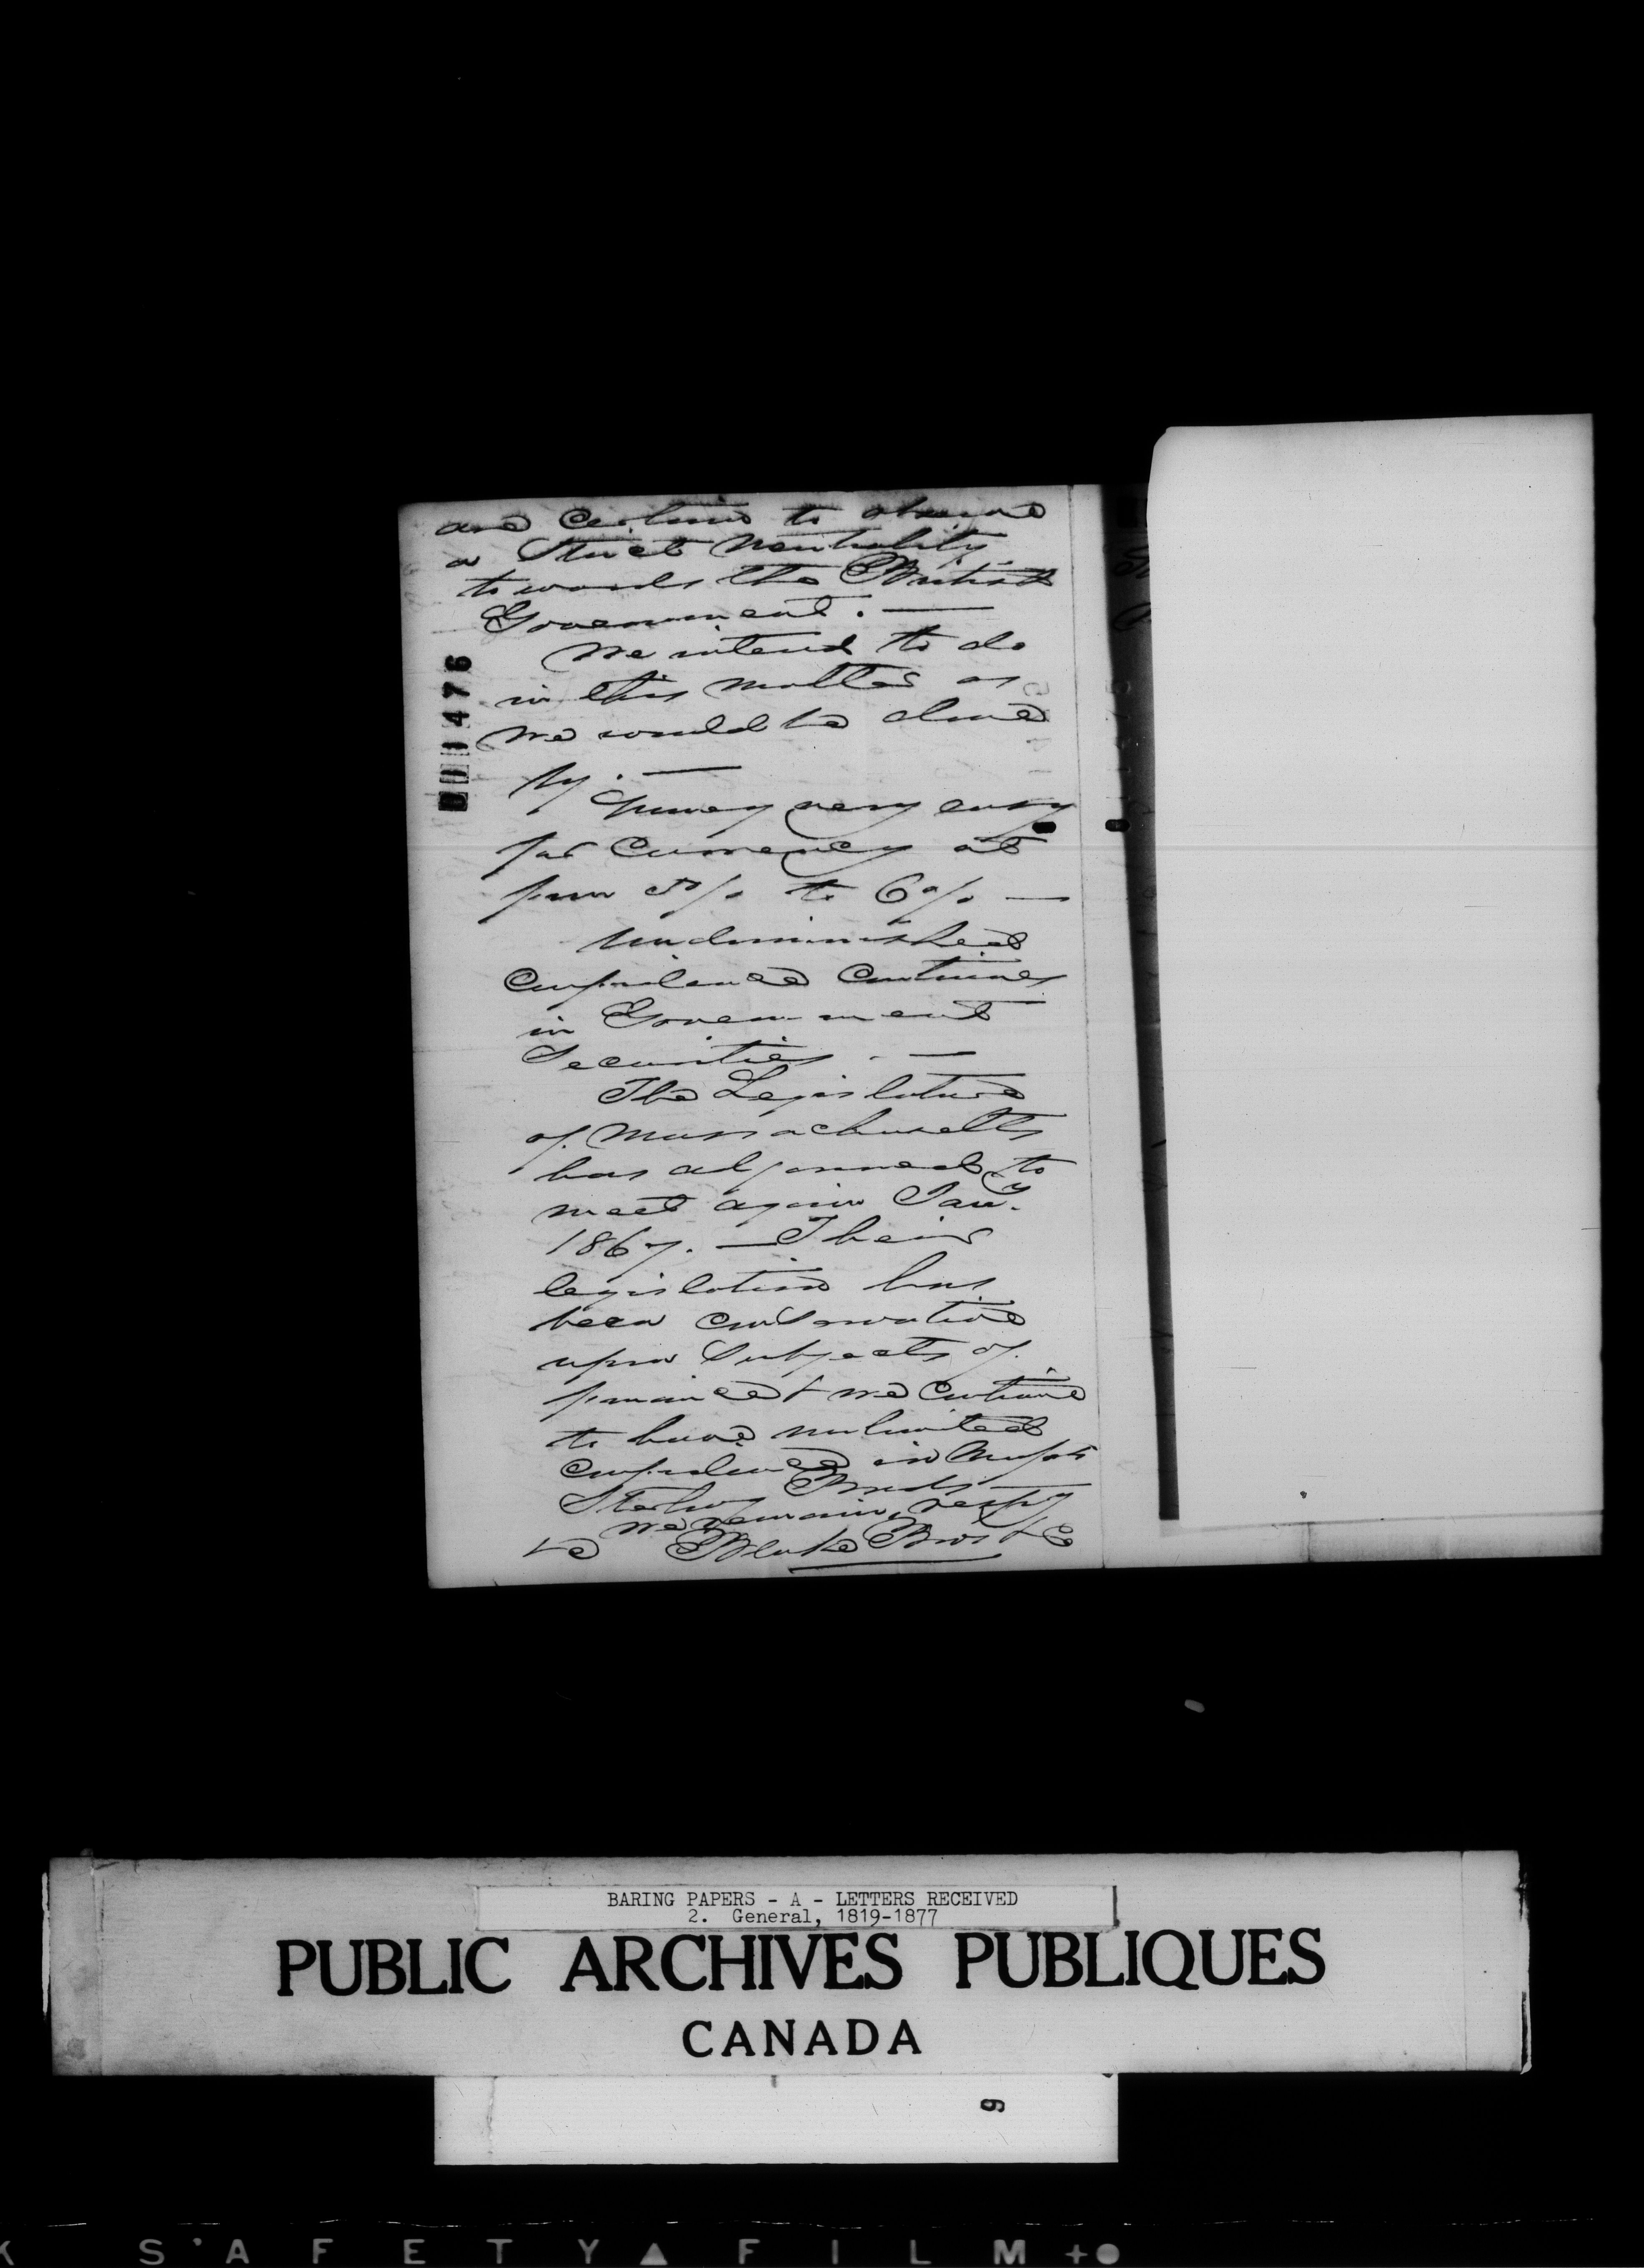 are certain to observe
a Strict Neutrality
towards the British
Government. —
We intend to do
in this matter as
we would be done
by. —
Money very easy
for Currency at
from 5% to 6% —
Undiminished
Confidence Continues
in Government
Securities. —
The Legislature
of Massachusetts
has adjourned to
meet again Jany.
1867. — Their
legislation has
been Conservative
upon Subjects of
finance & we Continue
to have unlimited
Confidence in
Sterling Bonds —
we remain, respy
Blake Bros & Co
001476
BARING PAPERS - A - LETTERS RECEIVED
2. General, 1819-1877
PUBLIC ARCHIVES PUBLIQUES
CANADA
9
SAFETY FILM